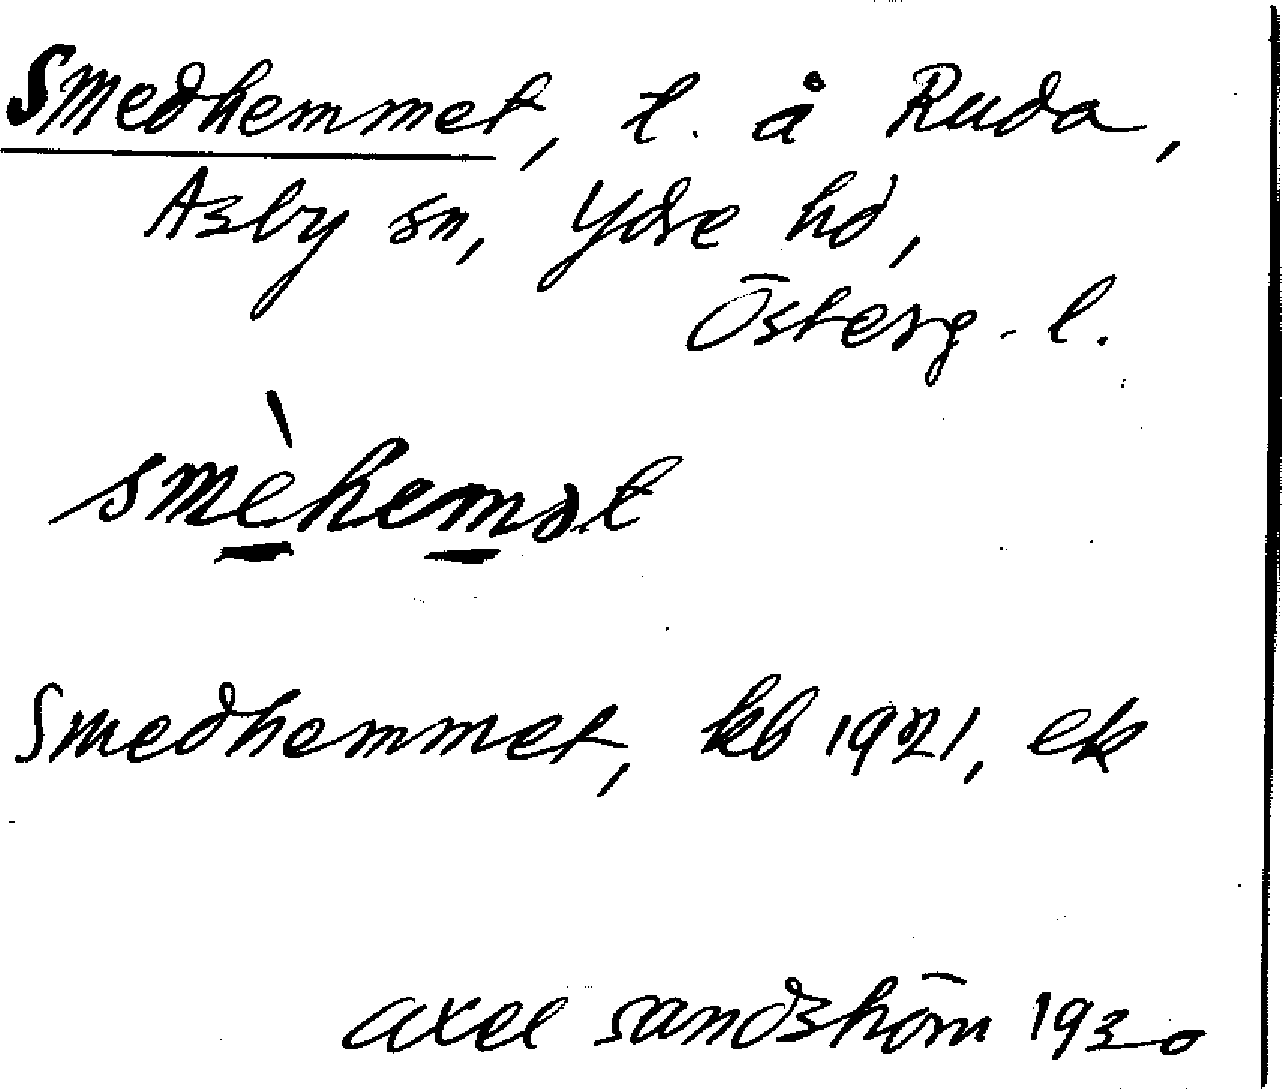 Smedhemmet, l. å Ruda,
Asby sn, Ydre hd,
Österg. l.
smèhemət
Smedhemmet, kb 1921, ek
axel sandström 1930